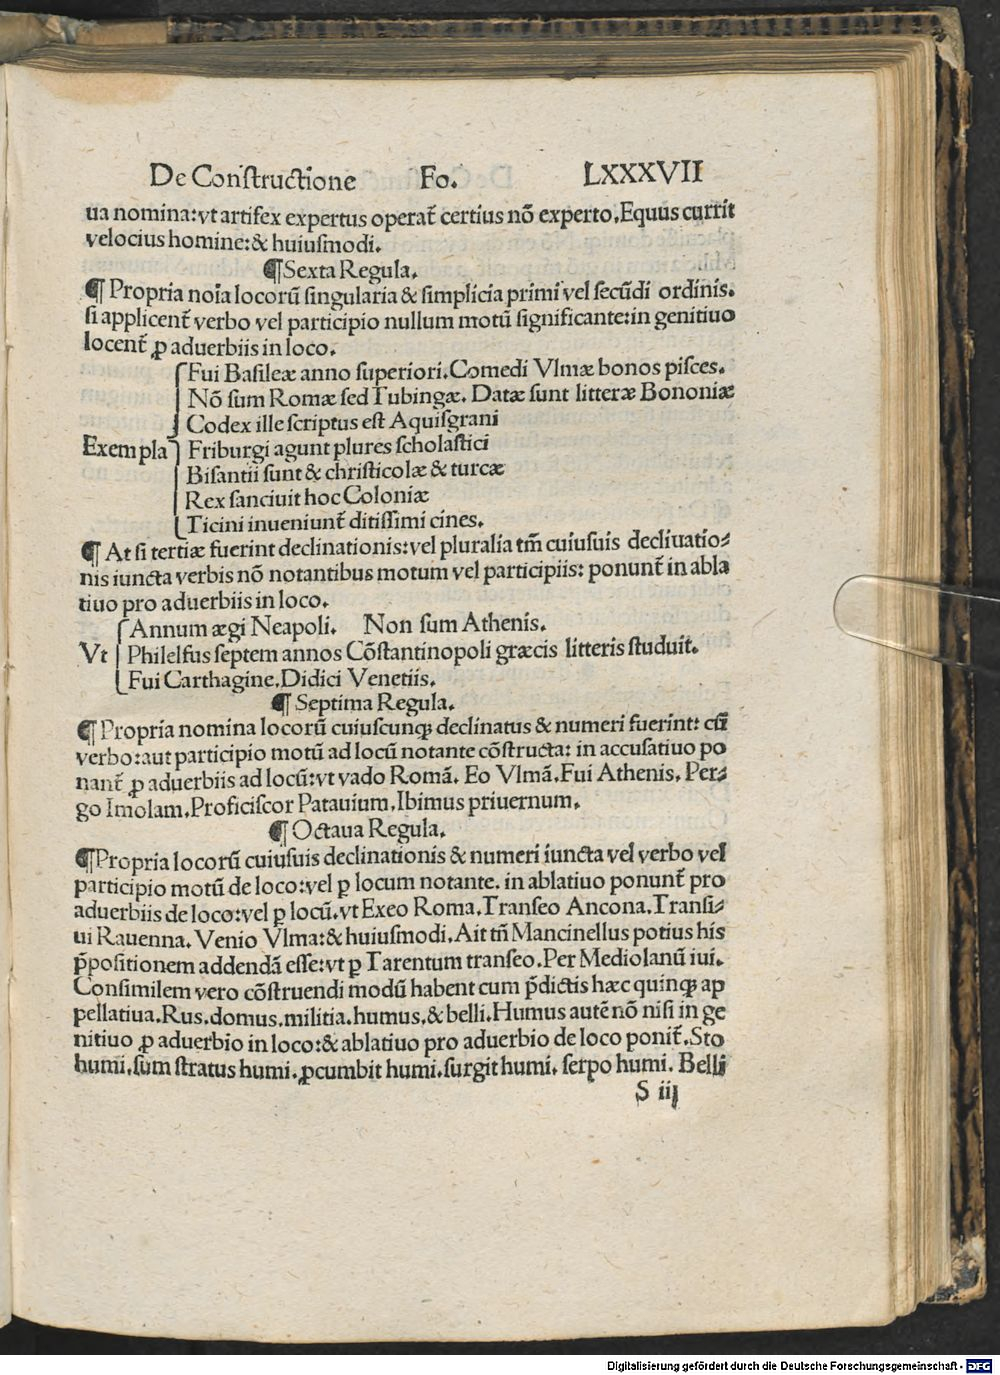 De Conſtructione Fo. LXXXVII
ua nomina:vt artifex expertus operat᷑ certius nõ experto.Equus currit
velocius homine:& huiuſmodi.
¶Sexta Regula.
¶ Propria noĩa locorũ ſingularia & ſimplicia primi vel ſecũdi ordinis.
ſi applicent᷑ verbo vel participio nullum motũ ſignificante:in genitiuo
locent᷑ ꝓ aduerbiis in loco.
Fui Baſileæ anno ſuperiori.Comedi Vlmæ bonos piſces.
Nõ ſum Romæ ſed Tubingæ. Datæ ſunt litteræ Bononiæ
Codex ille ſcriptus eſt Aquiſgrani
Exempla Friburgi agunt plures ſcholaſtici
Biſantii ſunt & chriſticolæ & turcæ
Rex ſanciuit hoc Coloniæ
Ticini inueniunt᷑ ditiſſimi cines.
¶ At ſi tertiæ fuerint declinationis:vel pluralia tm̃ cuiuſuis decliuatio⸗
nis iuncta verbis nõ notantibus motum vel participiis: ponunt᷑ in abla
tiuo pro aduerbiis in loco.
Annum ægi Neapoli. Non ſum Athenis.
Vt Philelfus ſeptem annos Cõſtantinopoli græcis litteris ſtuduit.
Fui Carthagine.Didici Venetiis.
¶ Septima Regula.
¶ Propria nomina locorũ cuiuſcunqꝫ declinatus & numeri fuerint: cũ
verbo:aut participio motũ ad locũ notante cõſtructa: in accuſatiuo po
nant᷑ ꝓ aduerbiis ad locũ:vt vado Romã. Eo Vlmã.Fui Athenis. Per⸗
go Imolam.Proficiſcor Patauium.Ibimus priuernum.
¶ Octaua Regula.
¶Propria locorũ cuiuſuis declinationis & numeri iuncta vel verbo vel
participio motũ de loco:vel ꝑ locum notante. in ablatiuo ponunt᷑ pro
aduerbiis de loco:vel ꝑ locũ.vt Exeo Roma.Tranſeo Ancona.Tranſi⸗
ui Rauenna. Venio Vlma:& huiuſmodi.Ait tñ Mancinellus potius his
p̃poſitionem addendã eſſe:vt ꝑ Tarentum tranſeo.Per Mediolanũ iui.
Conſimilem vero cõſtruendi modũ habent cum p̃dictis hæc quinqꝫ ap
pellatiua.Rus.domus.militia.humus.& belli.Humus autẽ nõ niſi in ge
nitiuo ꝓ aduerbio in loco:& ablatiuo pro aduerbio de loco ponit᷑.Sto
humi.ſum ſtratus humi.ꝓcumbit humi.ſurgit humi. ſerpo humi. Belli
S iij
Digitalisierung gefördert durch die Deutsche Forschungsgemeinschaft - DFG